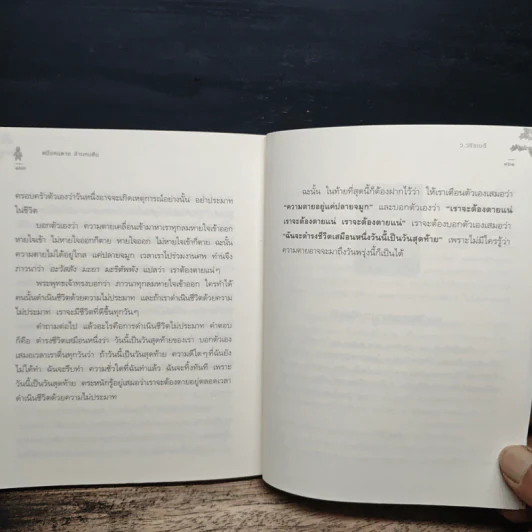 ครอบครัวตัวเองว่าวันหนึ่งอาจจะเกิดเหตุการณ์อย่างนั้น อย่าประมาท
ในชีวิต
บอกตัวเองว่า ความตายเคลื่อนเข้ามาหาเราทุกลมหายใจเข้าออก
หายใจเข้า ไม่หายใจออกก็ตาย หายใจออก ไม่หายใจเข้าก็ตาย ฉะนั้น
ความตายไม่ได้อยู่ไกล แค่ปลายจมูก เวลาเราไปร่วมงานศพ ท่านจึง
ภาวนาว่า อะวัสสัง มะยา มะริตัพพัง แปลว่า เราต้องตายแน่ๆ
พระพุทธเจ้าทรงบอกว่า ภาวนาทุกลมหายใจเข้าออก ใครทำได้
คนนั้นดำเนินชีวิตด้วยความไม่ประมาท และถ้าเราดำเนินชีวิตด้วยความ
ไม่ประมาท เราจะมีชีวิตที่ดีขึ้นทุกวันๆ
คำถามต่อไป แล้วอะไรคือการดำเนินชีวิตไม่ประมาท คำตอบ
ก็คือ ดำรงชีวิตเสมือนหนึ่งว่า วันนี้เป็นวันสุดท้ายของเรา บอกตัวเอง
เสมอเวลาเราตื่นทุกวันว่า ถ้าวันนี้เป็นวันสุดท้าย ความดีใดๆที่ฉันยัง
ไม่ได้ทำ ฉันจะรีบทำ ความชั่วใดที่ฉันทำแล้ว ฉันจะทิ้งทันที เพราะ
วันนี้เป็นวันสุดท้าย ตระหนักรู้อยู่เสมอว่าเราจะต้องตายอยู่ตลอดเวลา
ดำเนินชีวิตด้วยความไม่ประมาท
ว.วชิรเมธี
ฉะนั้น ในท้ายที่สุดนี้ก็ต้องฝากไว้ว่า ให้เราเตือนตัวเองเสมอว่า
"ความตายอยู่แค่ปลายจมูก" และบอกตัวเองว่า "เราจะต้องตายแน่
เราจะต้องตายแน่ เราจะต้องตายแน่" เราจะต้องบอกตัวเองเสมอว่า
"ฉันจะดำรงชีวิตเสมือนหนึ่งวันนี้เป็นวันสุดท้าย" เพราะไม่มีใครรู้ว่า
ความตายอาจจะมาถึงวันพรุ่งนี้ก็เป็นได้